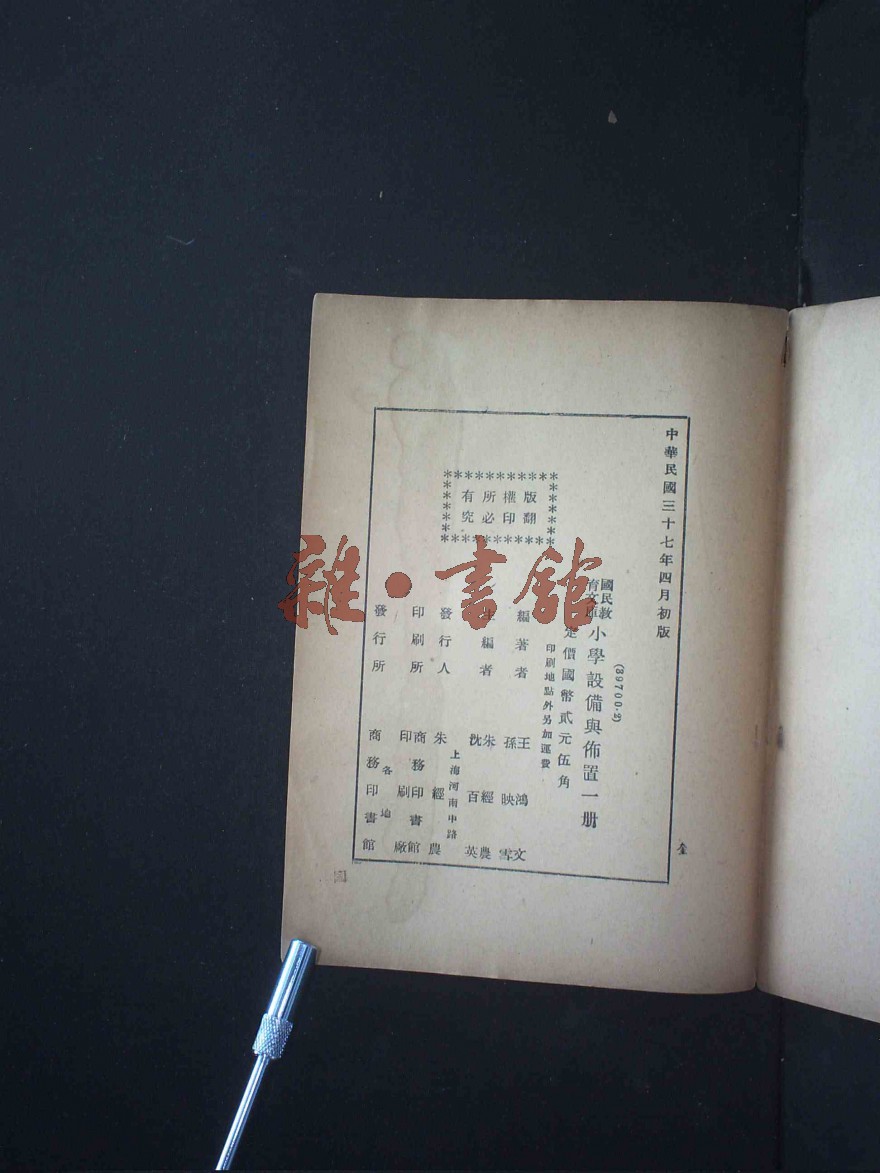 中華民國三十七年四月初版
(39700·2)
國民教
育文庫
小學設備與佈置一册
定價國幣貳元伍角
印刷地點外另加運費
版權所有
翻印必究
編著者 王鴻文
孫映雪
主編者 朱經農
沈百英
發行人 朱經農
上海河南中路
印刷所 商務印書館
印刷廠
發行所 各地
商務印書館
雜·書館